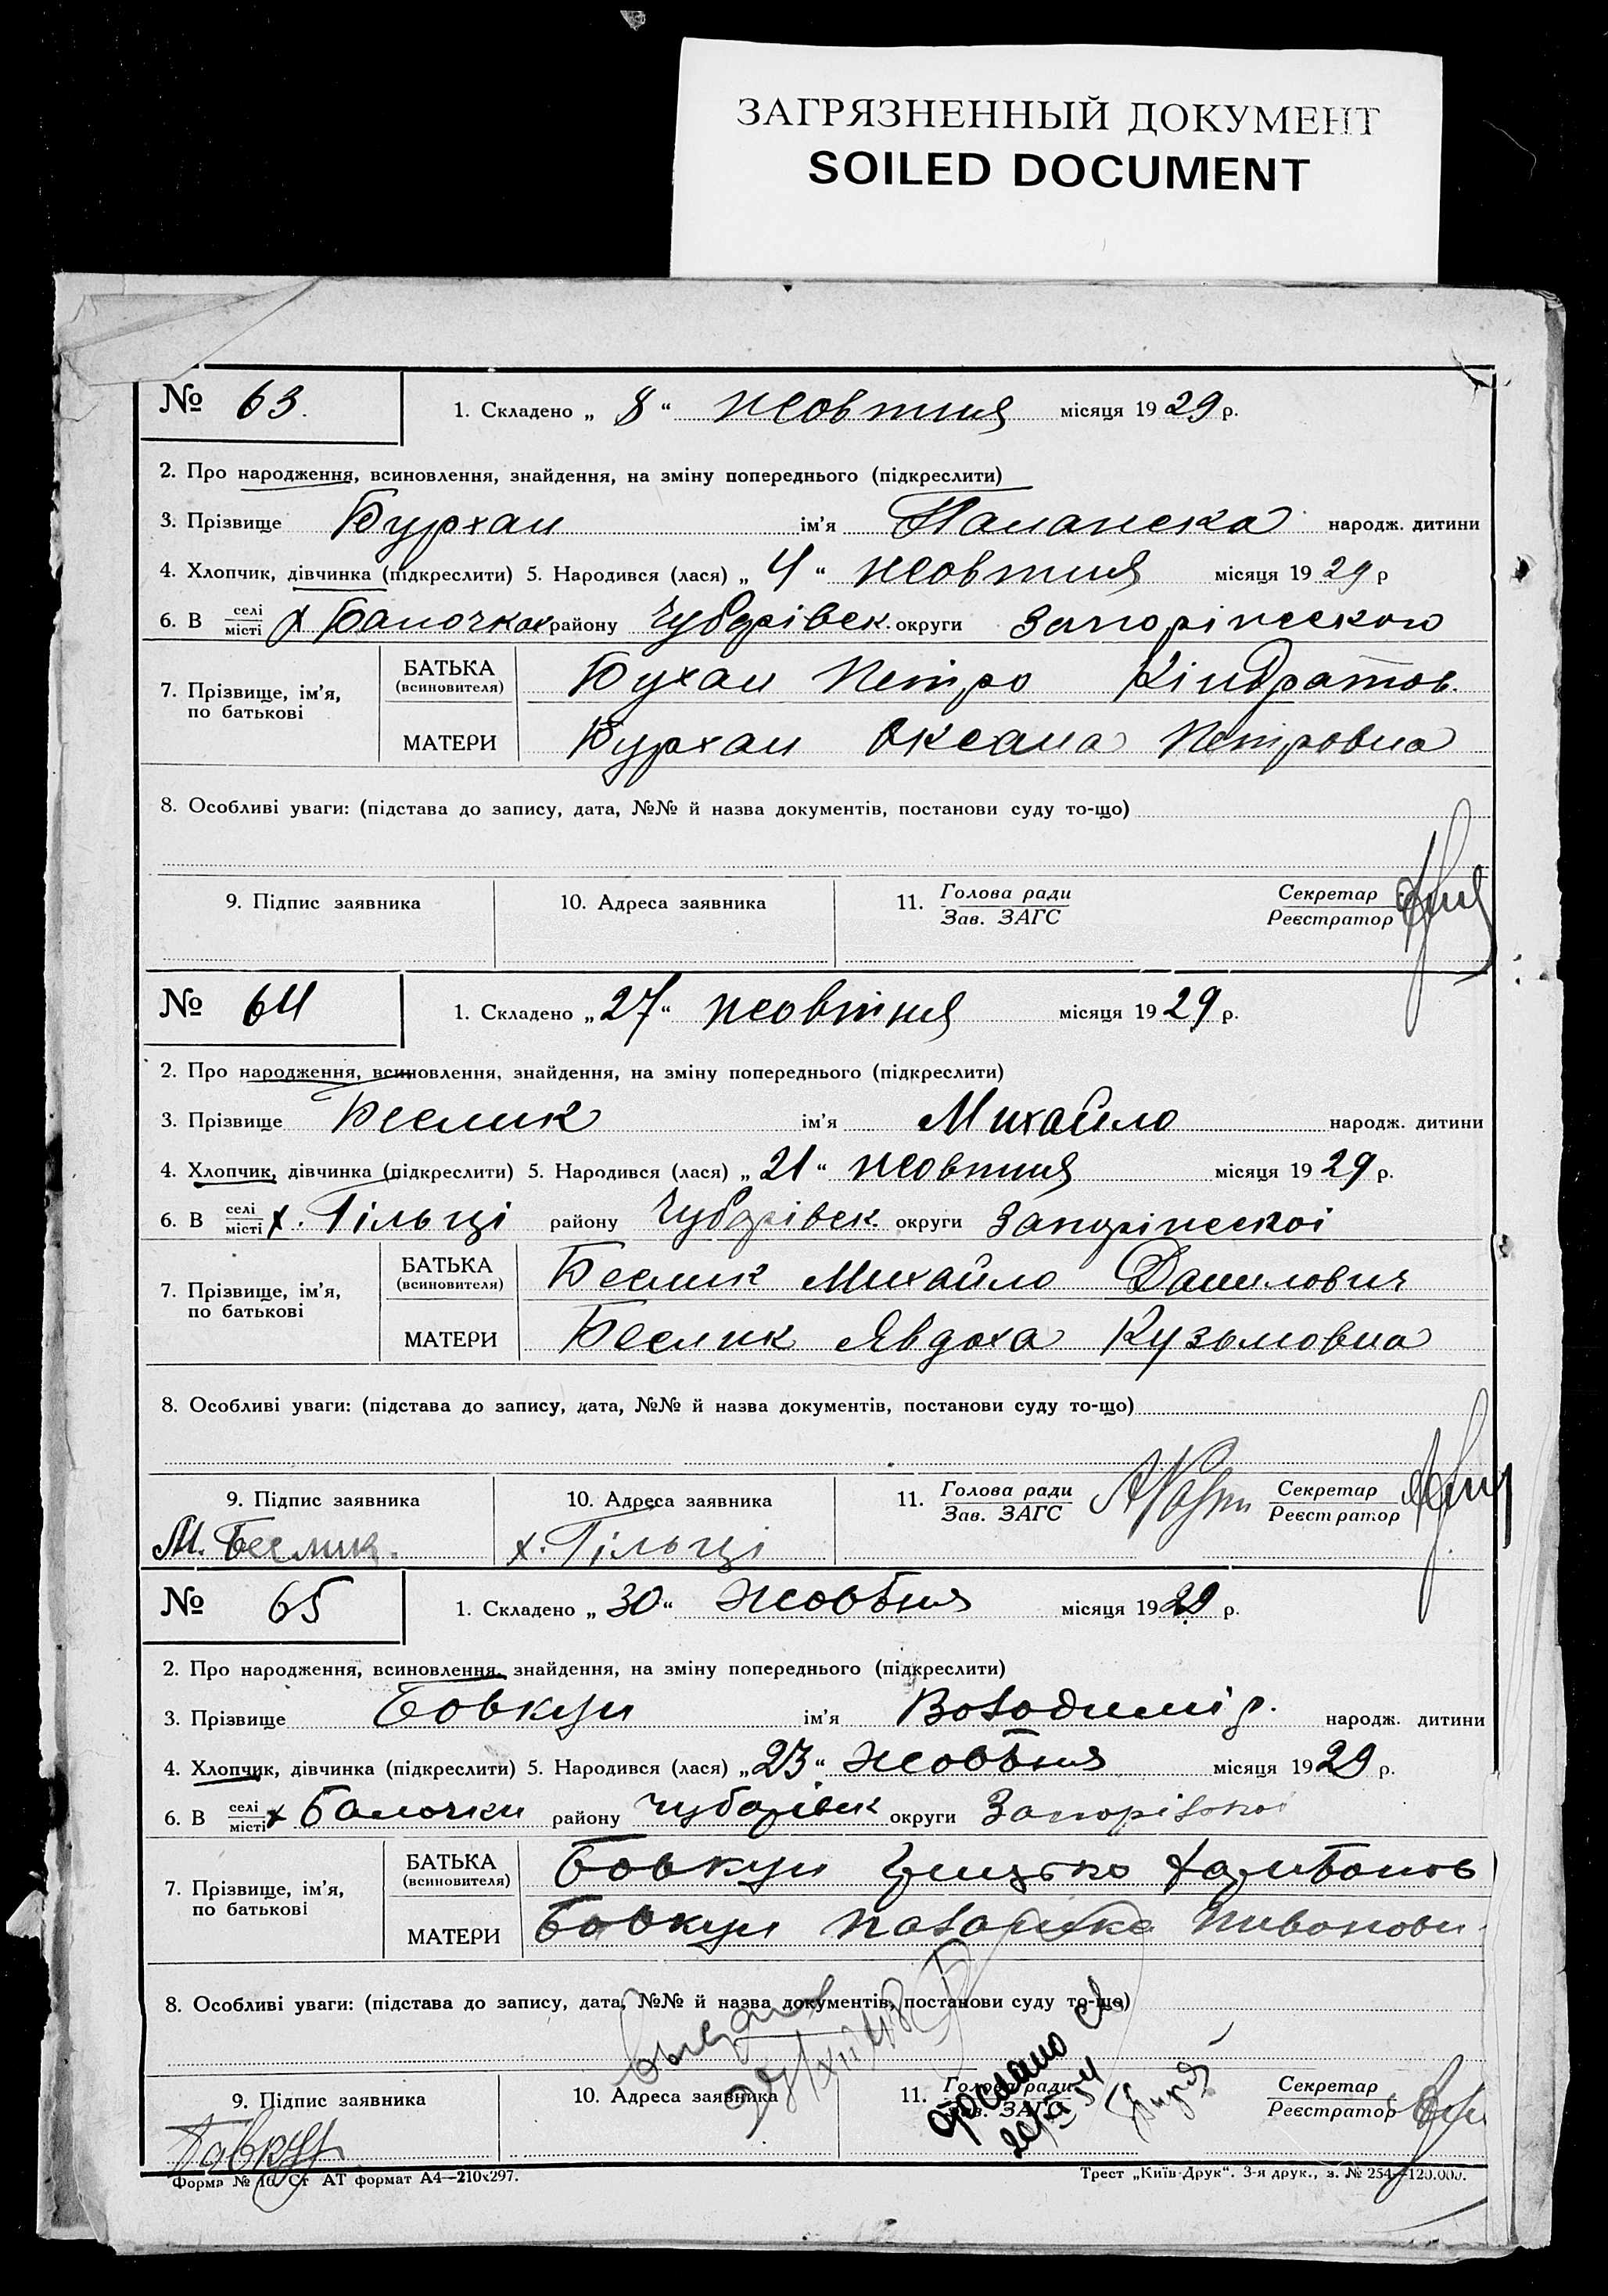 ЗАГРЯЗНЕННЫЙ ДОКУМЕНТ
SOILED DOCUMENT
№ 63. 1. Складено „ 8 “ жовтня місяця 1929 р.
2. Про народження, всиновлення, знайдення, на зміну попереднього (підкреслити)
3. Прізвище Бурхан ім’я народж. дитини
4. Хлопчик, дівчинка (підкреслити) 5. Народився (лася) „ 4 “ жовтня місяця 1929 р
6. В селі місті х Балочках району Чубарівськ. округи
7. Прізвище, ім’я, по батькові
БАТЬКА (всиновителя) Бухан Петро Кіндратов.
МАТЕРИ Бурхан Оксана Петровна
8. Особливі уваги: (підстава до запису, дата, №№ й назва документів, постанови суду то-що)
9. Підпис заявника 10. Адреса заявника 11. Голова ради Зав. ЗАГС Секретар Реєстратор
№ 64 1. Складено „ 27 “ жовтня місяця 1929 р.
2. Про народження, всиновлення, знайдення, на зміну попереднього (підкреслити)
3. Прізвище Беслик ім’я Михайло народж. дитини
4. Хлопчик, дівчинка (підкреслити) 5. Народився (лася) „ 21 “ жовтня місяця 1929 р.
6. В селі місті х. Гільці району Чубарівськ. округи
7. Прізвище, ім’я, по батькові
БАТЬКА (всиновителя) Беслик Михайло Данилович
МАТЕРИ Беслик Явдоха Кузьмовна
8. Особливі уваги: (підстава до запису, дата, №№ й назва документів, постанови суду то-що)
9. Підпис заявника 10. Адреса заявника 11. Голова ради Зав. ЗАГС Секретар Реєстратор
М. Беслик. х. Гільці
№ 65 1. Складено „ 30 “ жовтня місяця 1929 р.
2. Про народження, всиновлення, знайдення, на зміну попереднього (підкреслити)
3. Прізвище Бовкун ім’я Володимір. народж. дитини
4. Хлопчик, дівчинка (підкреслити) 5. Народився (лася) „ 23 “ жовтня місяця 1929 р.
6. В селі місті х Балочки району Чубарівськ округи
7. Прізвище, ім’я, по батькові
БАТЬКА (всиновителя) Бовкун Грицько
МАТЕРИ Бовкун
8. Особливі уваги: (підстава до запису, дата, №№ й назва документів, постанови суду то-що)
9. Підпис заявника 10. Адреса заявника 11. Голова ради Зав. ЗАГС Секретар Реєстратор
Форма № 10. Ст АТ формат А4—210х297. Трест „Київ-Друк“. 3-я друк., з. № 254—120.000.